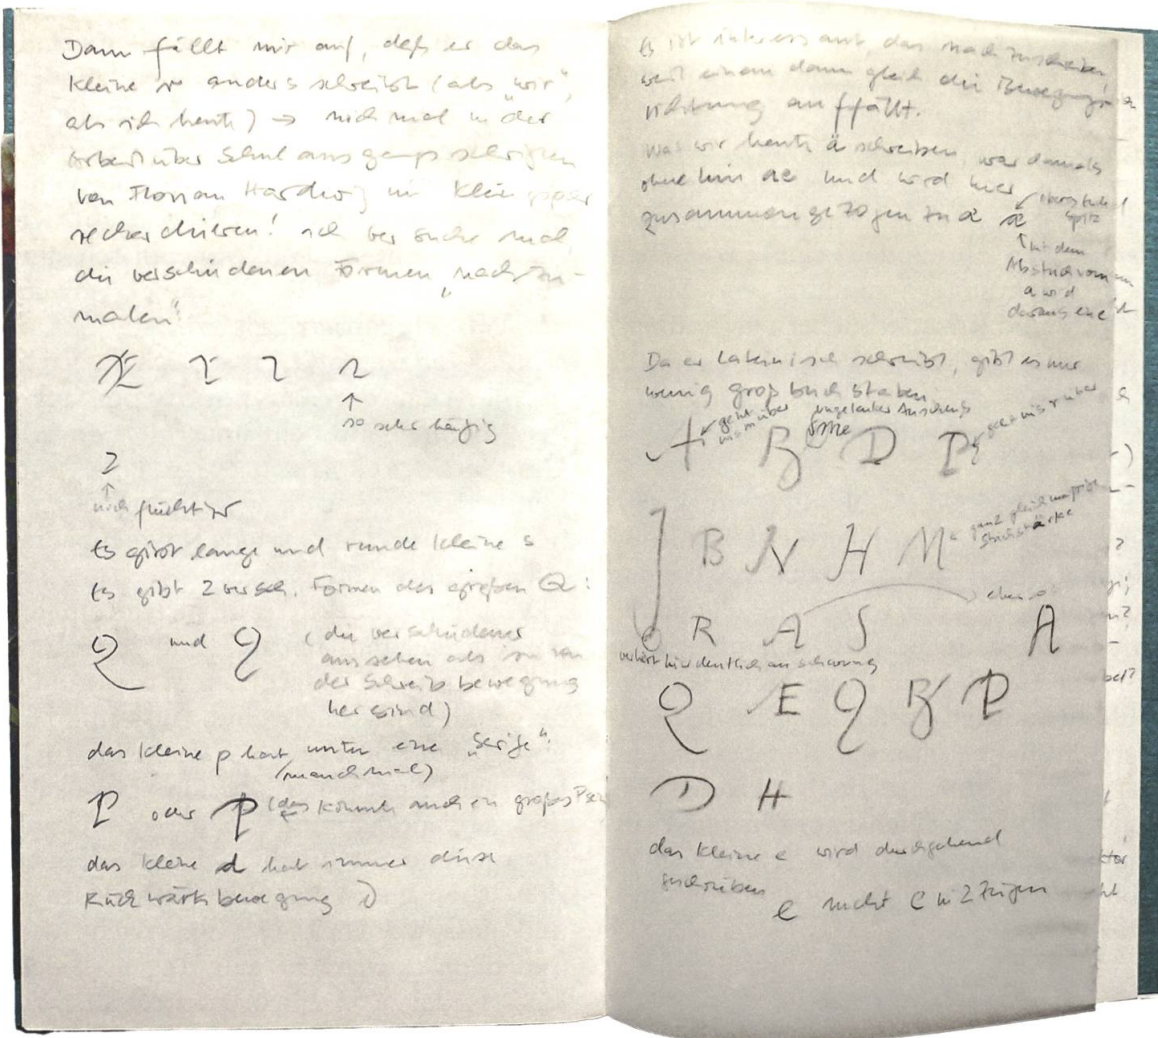 Dann fällt mir auf, daß er das
kleine r anders schreibt (als „wir“,
als ich heute) → nochmal in der
Arbeit über Schulausgangsschriften
von Florian Hardwig im Kleingspor
recherchieren! Ich versuche mal,
die verschiedenen Formen „nachzu-
malen“:
↑
so sehr häufig
↑
noch flüchtiger
Es gibt lange und runde kleine s
Es gibt 2 versch. Formen des großen Q:
Q und Q (die verschiedener
aussehen als sie von
der Schreibbewegung
her sind)
das kleine p hat unten eine „Serife“:
(manchmal)
P oder P (das könnte auch ein großes P sein
das kleine d hat immer diese
Rückwärtsbewegung
Es ist interessant, das nachzuschreiben,
weil einem dann gleich die Bewegungs-
richtung auffällt.
Was wir heute ä schreiben, war damals
ohnehin ae und wird hier
zusammengezogen zu æ æ
↑ mit dem
Abstrich vom
a wird
daraus ein e
Da er lateinisch schreibt, gibt es nur
wenig Großbuchstaben
geht
ungelenker Anschwung
A B D P
J B N H M ganz gleichmäßige
Strichstärke
ebenso
R A S A
verliert hier deutlich an Schwung
Q E Q B P
D H
das kleine e wird durchgehend
geschrieben
e nicht e in 2 Zügen